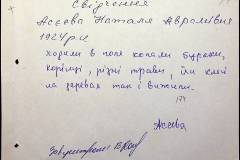 Свідчення
Асєєва Наталя Авралівня
1924 р.н
ходили в поле копали буряки,
корінці, різні трави, їли клей
на деревах так і вижили.
Асєєва